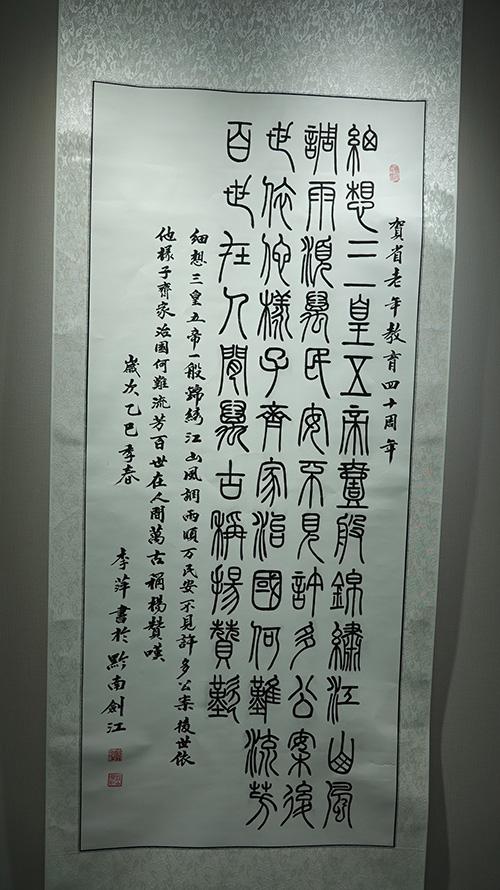 賀省老年教育四十周年
細想三皇五帝壹般錦繡江山風
調雨順萬民安不見許多公案後
世依佗樣子齊家治國何難流芳
百世在人間萬古稱揚贊歎
細想三皇五帝一般錦綉江山風調雨順万民安不見許多公案後世依
他樣子齊家治國何難流芳百世在人間萬古稱楊贊嘆
歲次乙巳季春
李萍書於黔南劍江